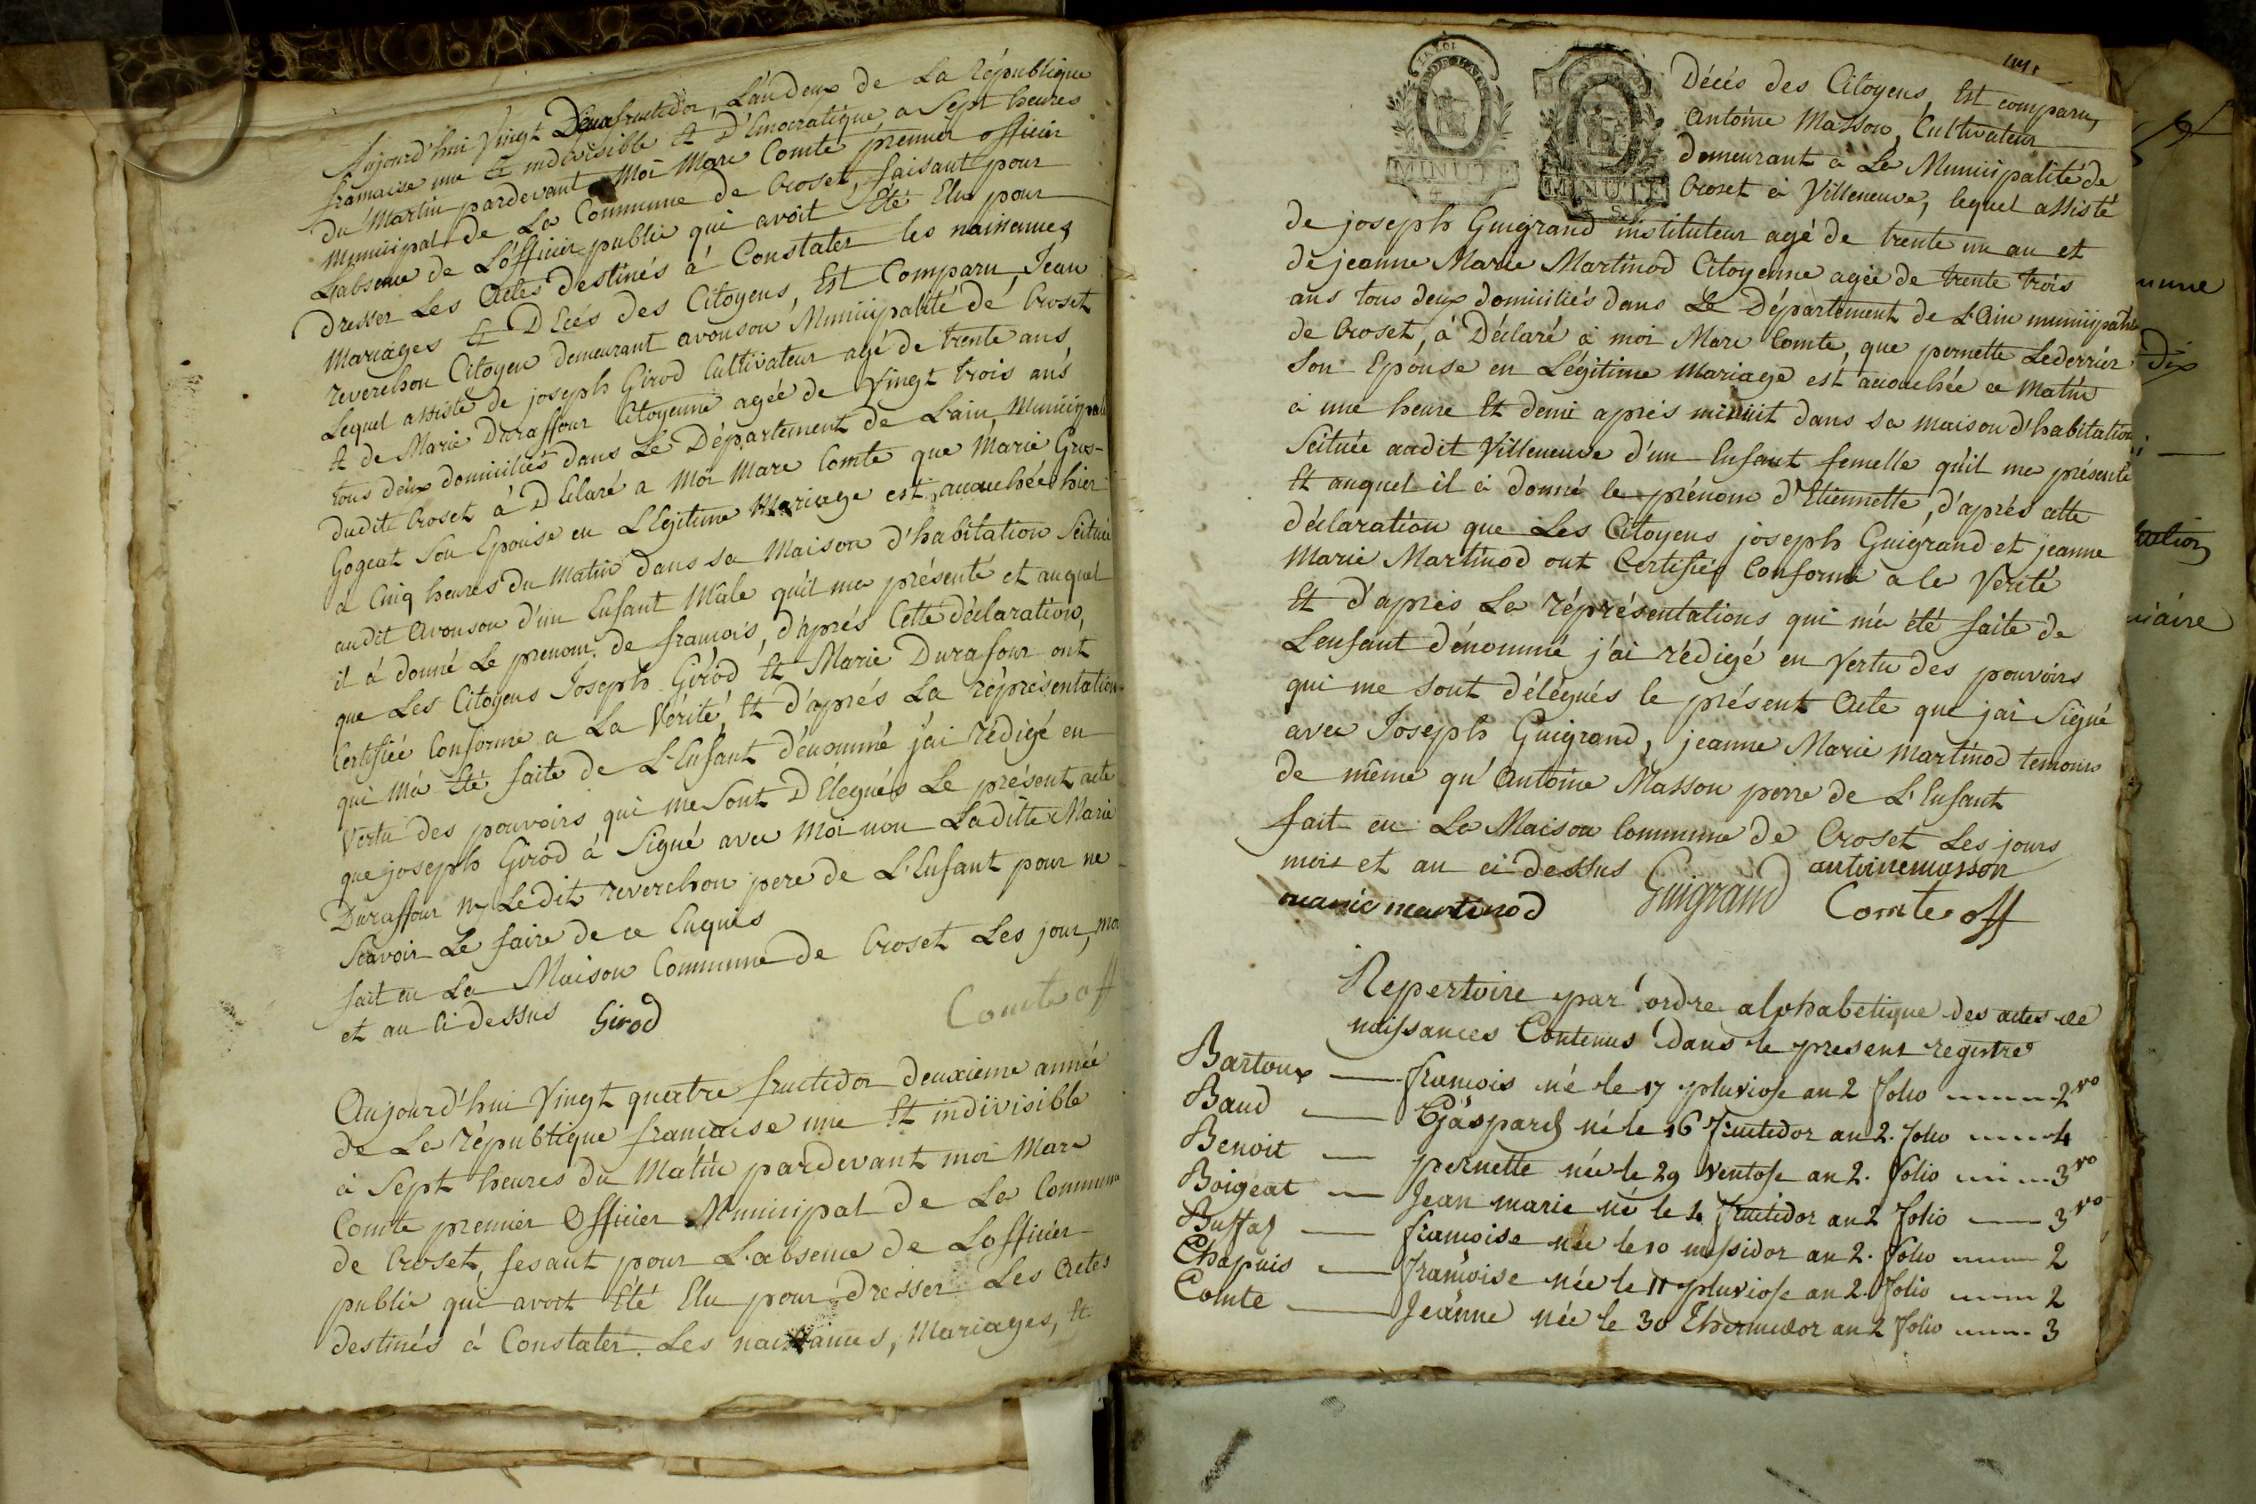 Aujourd'hui Vingt Deux fructidor, L'an Deux de La République
francaise une Et indivisible Et D'Emocratique a Sept heures
Du Martin pardevant Moi Marc Comte premier officier
Municipal de La Commune de Croset, faisant pour
L'absence de L'officier public qui avoit Eté Elu pour
Dresser Les Actes Destinés à Constater les naissances
Mariages Et DEcés des Citoyens, Est Comparu Jean
reverchon Citoyen demeurant avouson Municipalité de Croset
Lequel assisté de joseph Girod Cultivateur agé de trente ans
Et de Marie Duraffour Citoyenne agée de Vingt trois ans
tous deux domiciliés dans Le Département de L'ain Municipalité
dudit Croset à DEclaré a Moi Marc Comte que Marie Gros-
Gogeat Son Epouse en LEgitime Mariage est accouchée hier
a Cinq heures du matin dans sa Maison d'habitation Scituée
audit Avouson d'un Enfant Male qu'il ma présenté et auquel
il à donné Le prenom de francois, d'aprés Cette déclaration,
que Les Citoyens Joseph Girod Et Marie Durafour ont
Certifiée Conforme a La Vérité, Et d'aprés La réprésentation
qui má Eté faite de L'Enfant dénommé j'ai rédigé en
Vertu des pouvoirs qui me Sont DElegués Le présent acte
que joseph Girod à Signé avec Moi non Laditte Marie
Duraffour ny Ledit reverchon pere de L'Enfant pour ne
Scavoir Le faire de ce Enquis
fait en La Maison Commune de Croset Les jour, moi
et an Ci dessus Girod
Comte off
Aujourd'hui Vingt quatre fructidor deuxieme année
de La république francaise une Et indivisible
à Sept heures du Matin pardevant moi Marc
Comte premier Officier Municipal de La Commune
de Croset, fesant pour L'absence de L'officier
public qui avoit Eté Elu pour Dresser Les Actes
destinés à Constater Les naissances, Mariages, Et
LA LOI
MINUTE
MINUTE
Décés des Citoyens, Est comparu,
Antoine Masson, Cultivateur
demeurant a La Municipalité de
Croset à Villeneuve, lequel assisté
de joseph Guigrand instituteur agé de trente un an et
de jeanne Marie Martinod Citoyenne agée de trente trois
ans tous deux domiciliés dans Le Département de L'Ain municipalité
de Croset, à Déclaré à moi Marc Comte, que pernette Lederrier
Son Epouse en Légitime Mariage est accouchée ce Matin
à une heure Et demi aprés minuit dans sa maison d'habitation
Scituée audit Villeneuve d'un Enfant femelle qu'il ma présenté
Et auquel il à donné le prénom d'Etiennette, d'aprés cette
déclaration que Les Citoyens joseph Guigrand et jeanne
Marie Martinod ont Certifiés Conforme a la Verité
Et d'aprés La réprésentations qui má été faite de
L'enfant dénommé j'ai rédigé en Vertu des pouvoirs
qui me sont délégués le présent Acte que j'ai Signé
avec Joseph Guigrand, jeanne Marie martinod temoins
de même qu'Antoine Masson perre de L'Enfant
fait en La Maison Commune de Croset Les jours
mois et an ci dessus Guigrand antoinemasson
marie martinod Comte off
Repertoire par ordre alphabetique des actes de
naissances Contenus Dans le present registre
Bartoux francois né le 17 pluviose an 2 folio 2 vo
Baud Gáspard né le 16 fructidor an 2. folio 4
Benoit pernette née le 29 Ventose an 2. folio 3 vo
Boigeat Jean marie né le 4 fructidor an 2 folio 3 vo
Buffaz francoise née le 10 messidor an 2. folio 2
Chapuis françoise née le 11 pluviose an 2. folio 2
Comte Jeanne née le 30 Thermidor an 2 folio 3